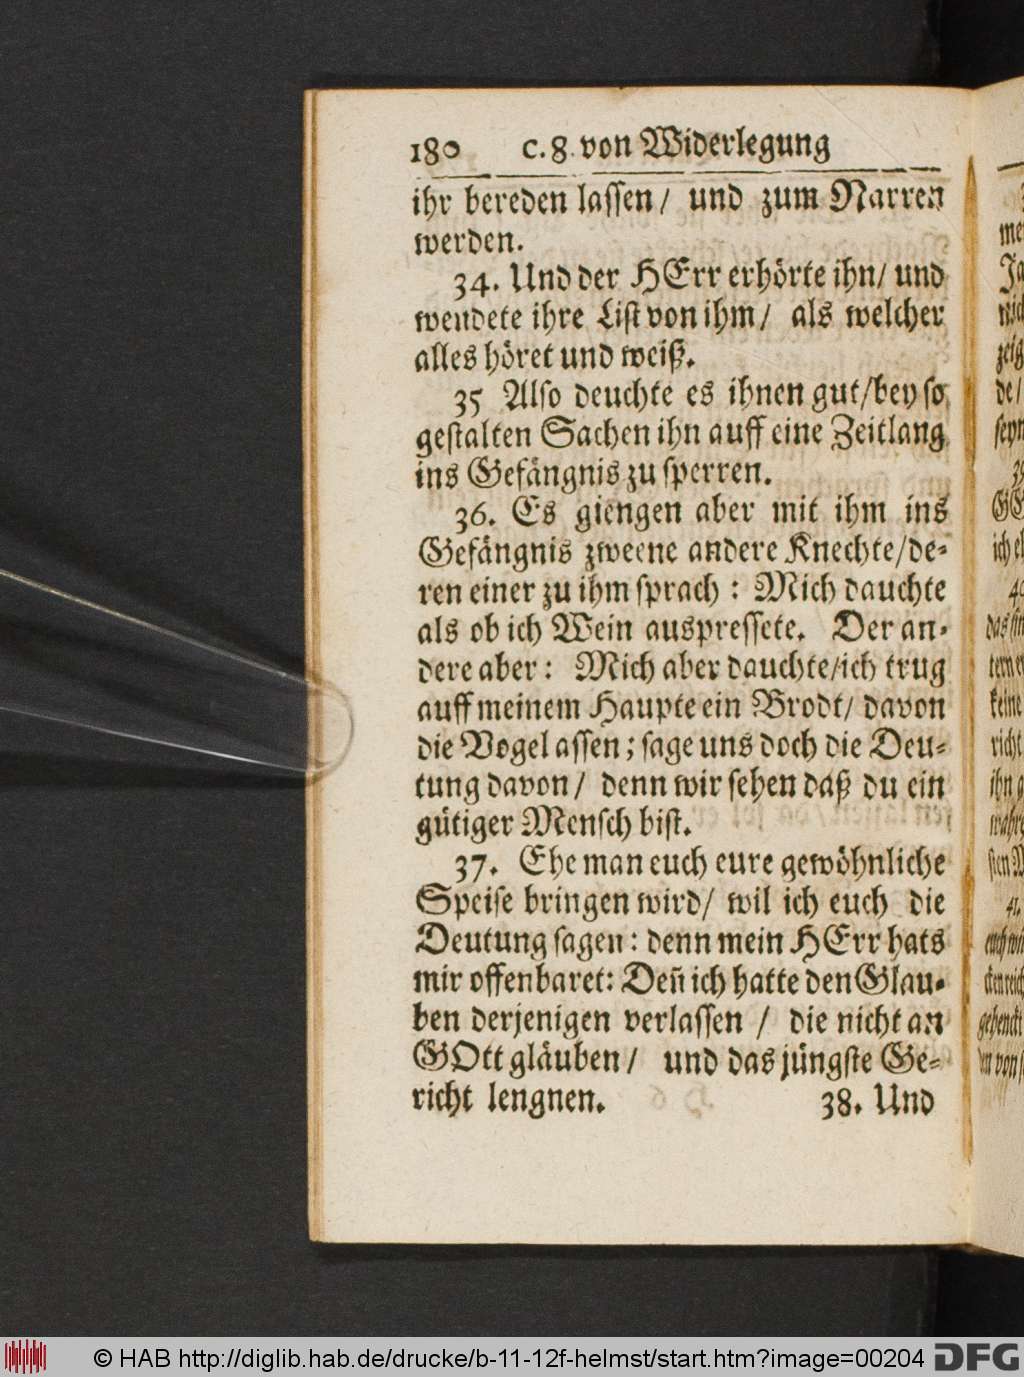 180 c. 8. von Widerlegung
ihr bereden lassen / und zum Narren
werden.
34. Und der HErr erhörte ihn / und
wendete ihre List von ihm / als welcher
alles höret und weiß.
35 Also deuchte es ihnen gut / bey so
gestalten Sachen ihn auff eine Zeitlang
ins Gefängnis zu sperren.
36. Es giengen aber mit ihm ins
Gefängnis zweene andere Knechte / de-
ren einer zu ihm sprach : Mich dauchte
als ob ich Wein auspressete. Der an-
dere aber : Mich aber dauchte / ich trug
auff meinem Haupte ein Brodt / davon
die Vogel assen ; sage uns doch die Deu-
tung davon / denn wir sehen daß du ein
gütiger Mensch bist.
37. Ehe man euch eure gewöhnliche
Speise bringen wird / wil ich euch die
Deutung sagen : denn mein HErr hats
mir offenbaret : Deñ ich hatte den Glau-
ben derjenigen verlassen / die nicht an
GOtt gläuben / und das jüngste Ge-
richt lengnen. 38. Und
© HAB http://diglib.hab.de/drucke/b-11-12f-helmst/start.htm?image=00204 DFG